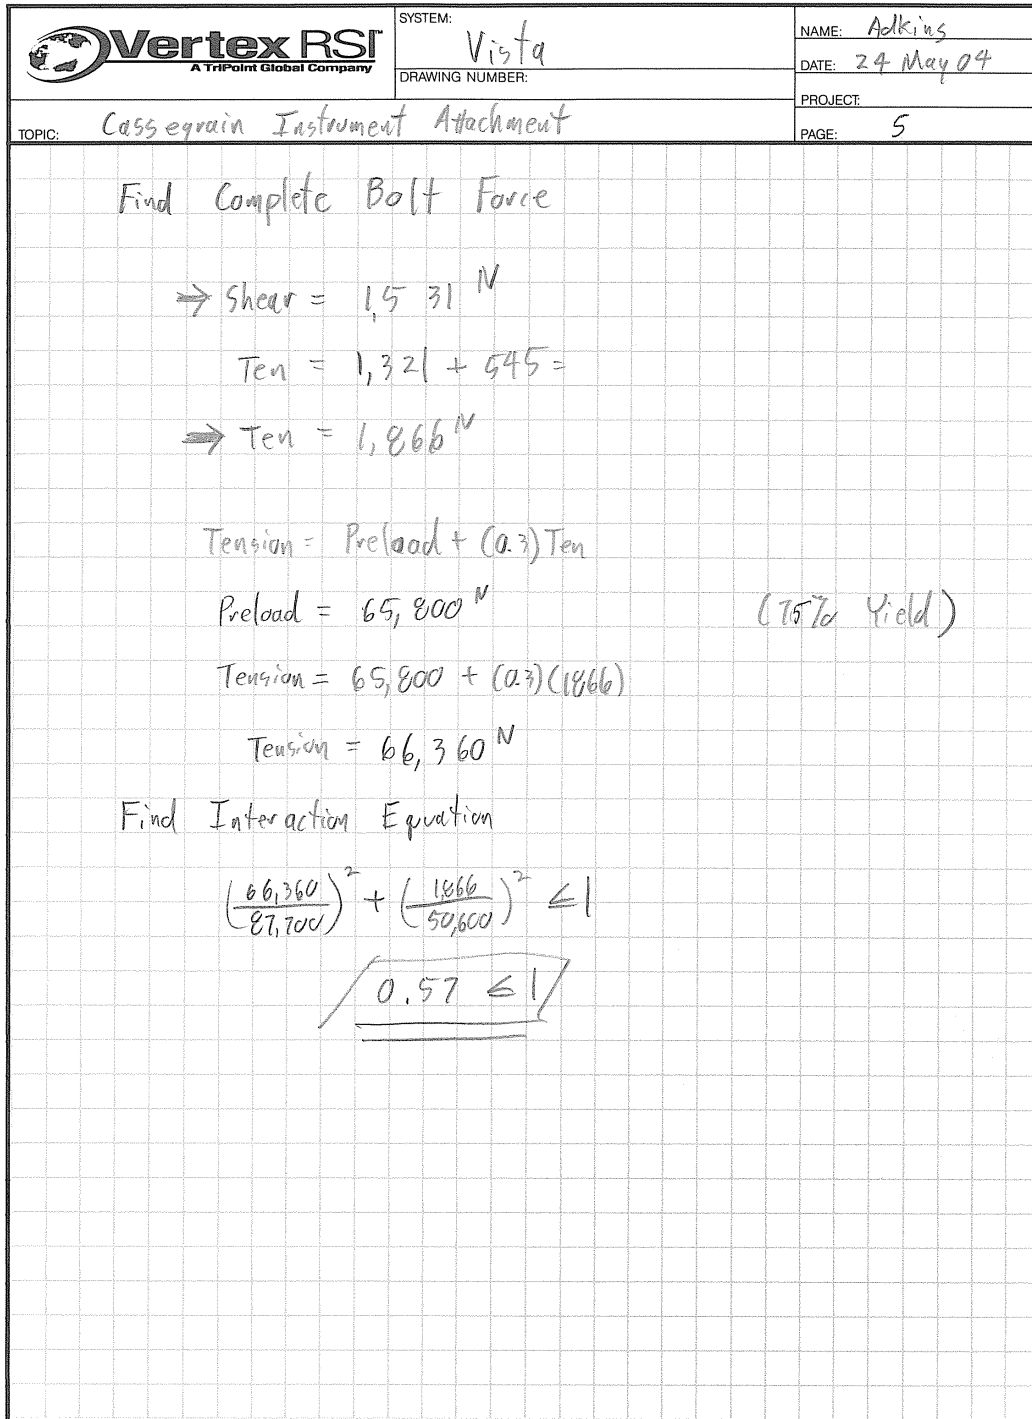 Vertex RSI
A TriPoint Global Company
SYSTEM: Vista
DRAWING NUMBER:
NAME: Adkins
DATE: 24 May 04
PROJECT:
TOPIC: Cassegrain Instrument Attachment
PAGE: 5
Find Complete Bolt Force
⇒ Shear = 1,531 N
Ten = 1,321 + 545 =
⇒ Ten = 1,866 N
Tension = Preload + (0.3) Ten
Preload = 65,800 N (75% Yield)
Tension = 65,800 + (0.3)(1866)
Tension = 66,360 N
Find Interaction Equation
(66,360/87,700)² + (1,866/50,600)² ≤ 1
0.57 ≤ 1